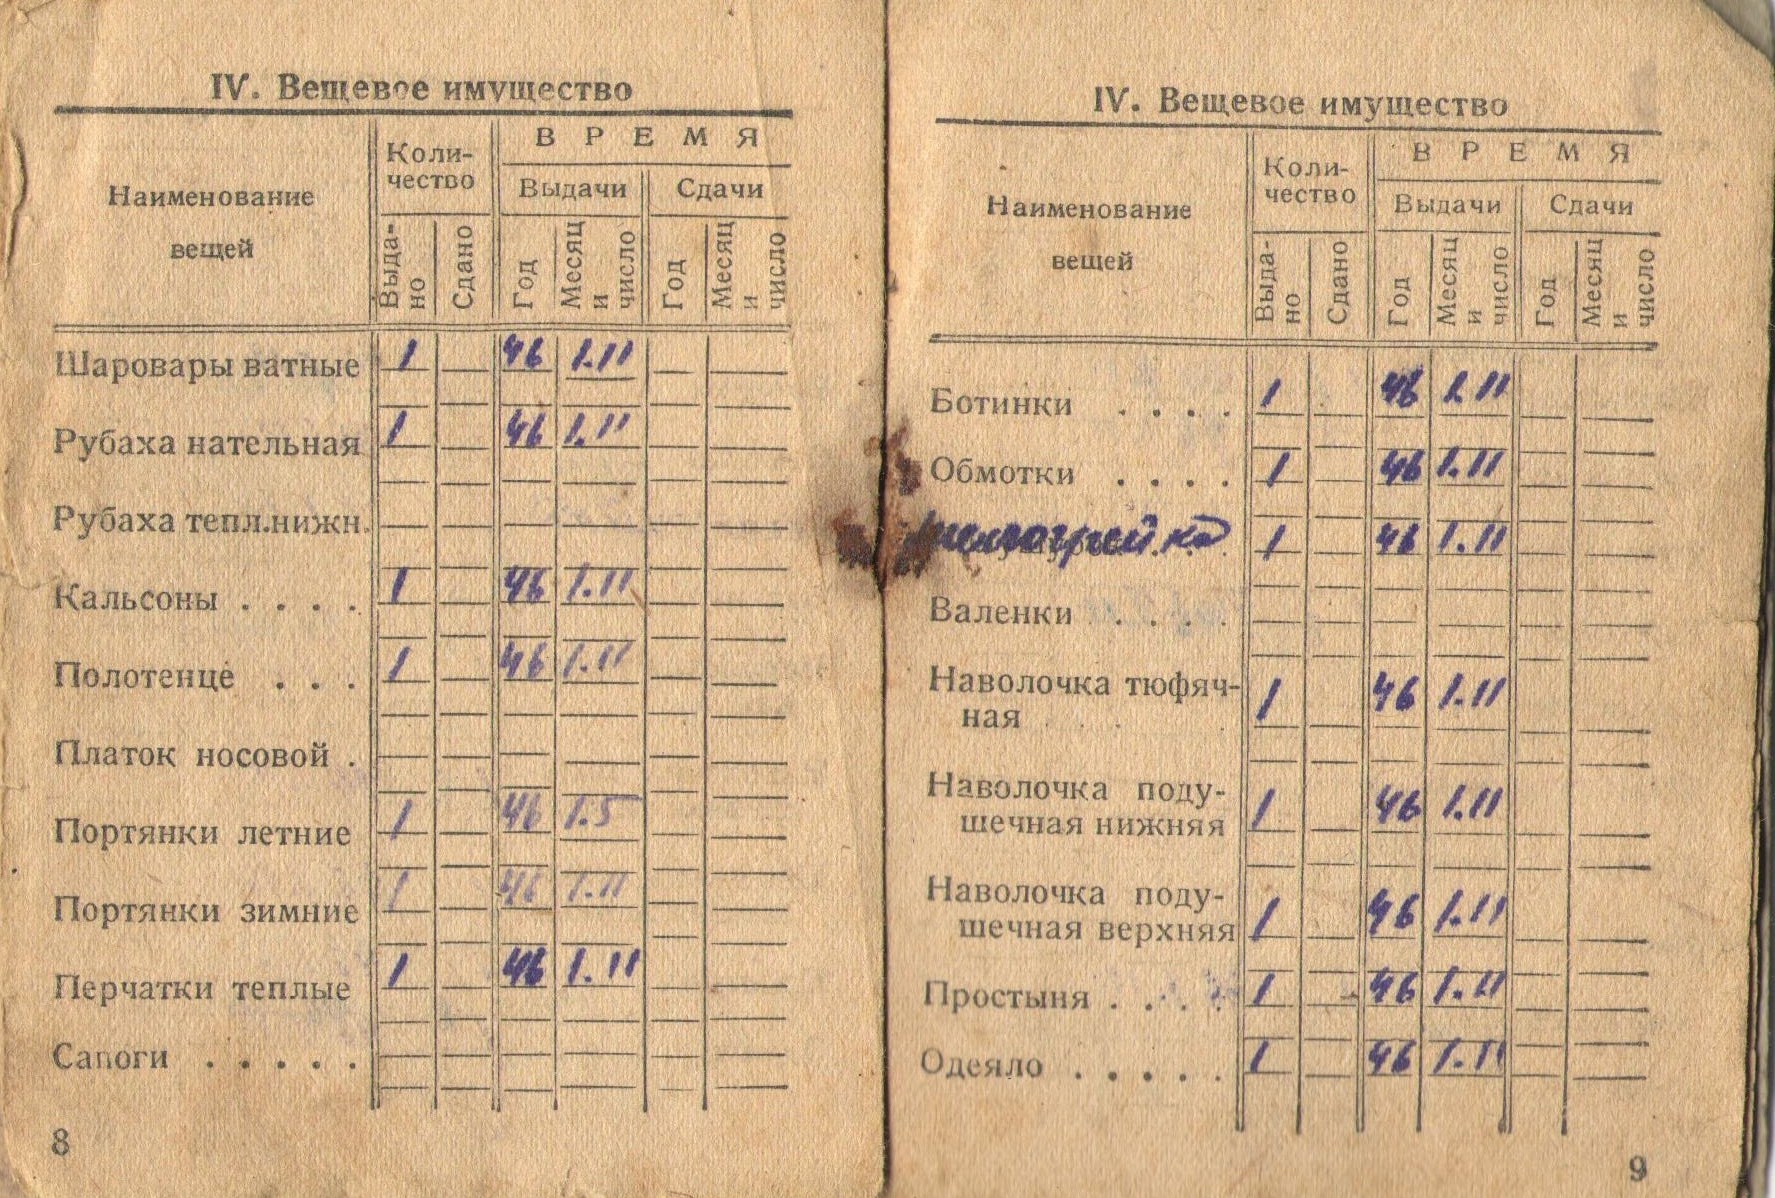 IV. Вещевое имущество
Наименование вещей
Коли-
чество
ВРЕМЯ
Выдачи
Сдачи
Выда-
но
Сдано
Год
Месяц
и
число
Год
Месяц
и
число
Шаровары ватные 1 46 1.11
Рубаха нательная 1 46 1.11
Рубаха тепл.нижн.
Кальсоны . . . . 1 46 1.11
Полотенце . . . 1 46 1.11
Платок носовой .
Портянки летние 1 46 1.5
Портянки зимние 1 46 1.11
Перчатки теплые 1 46 1.11
Сапоги . . . . .
8
IV. Вещевое имущество
Наименование вещей
Коли-
чество
ВРЕМЯ
Выдачи
Сдачи
Выда-
но
Сдано
Год
Месяц
и
число
Год
Месяц
и
число
Ботинки . . . . 1 46 1.11
Обмотки . . . . 1 46 1.11
телогрейка 1 46 1.11
Валенки . . . .
Наволочка тюфяч-
ная . . . 1 46 1.11
Наволочка поду-
шечная нижняя 1 46 1.11
Наволочка поду-
шечная верхняя 1 46 1.11
Простыня . . . . 1 46 1.11
Одеяло . . . . . 1 46 1.11
9